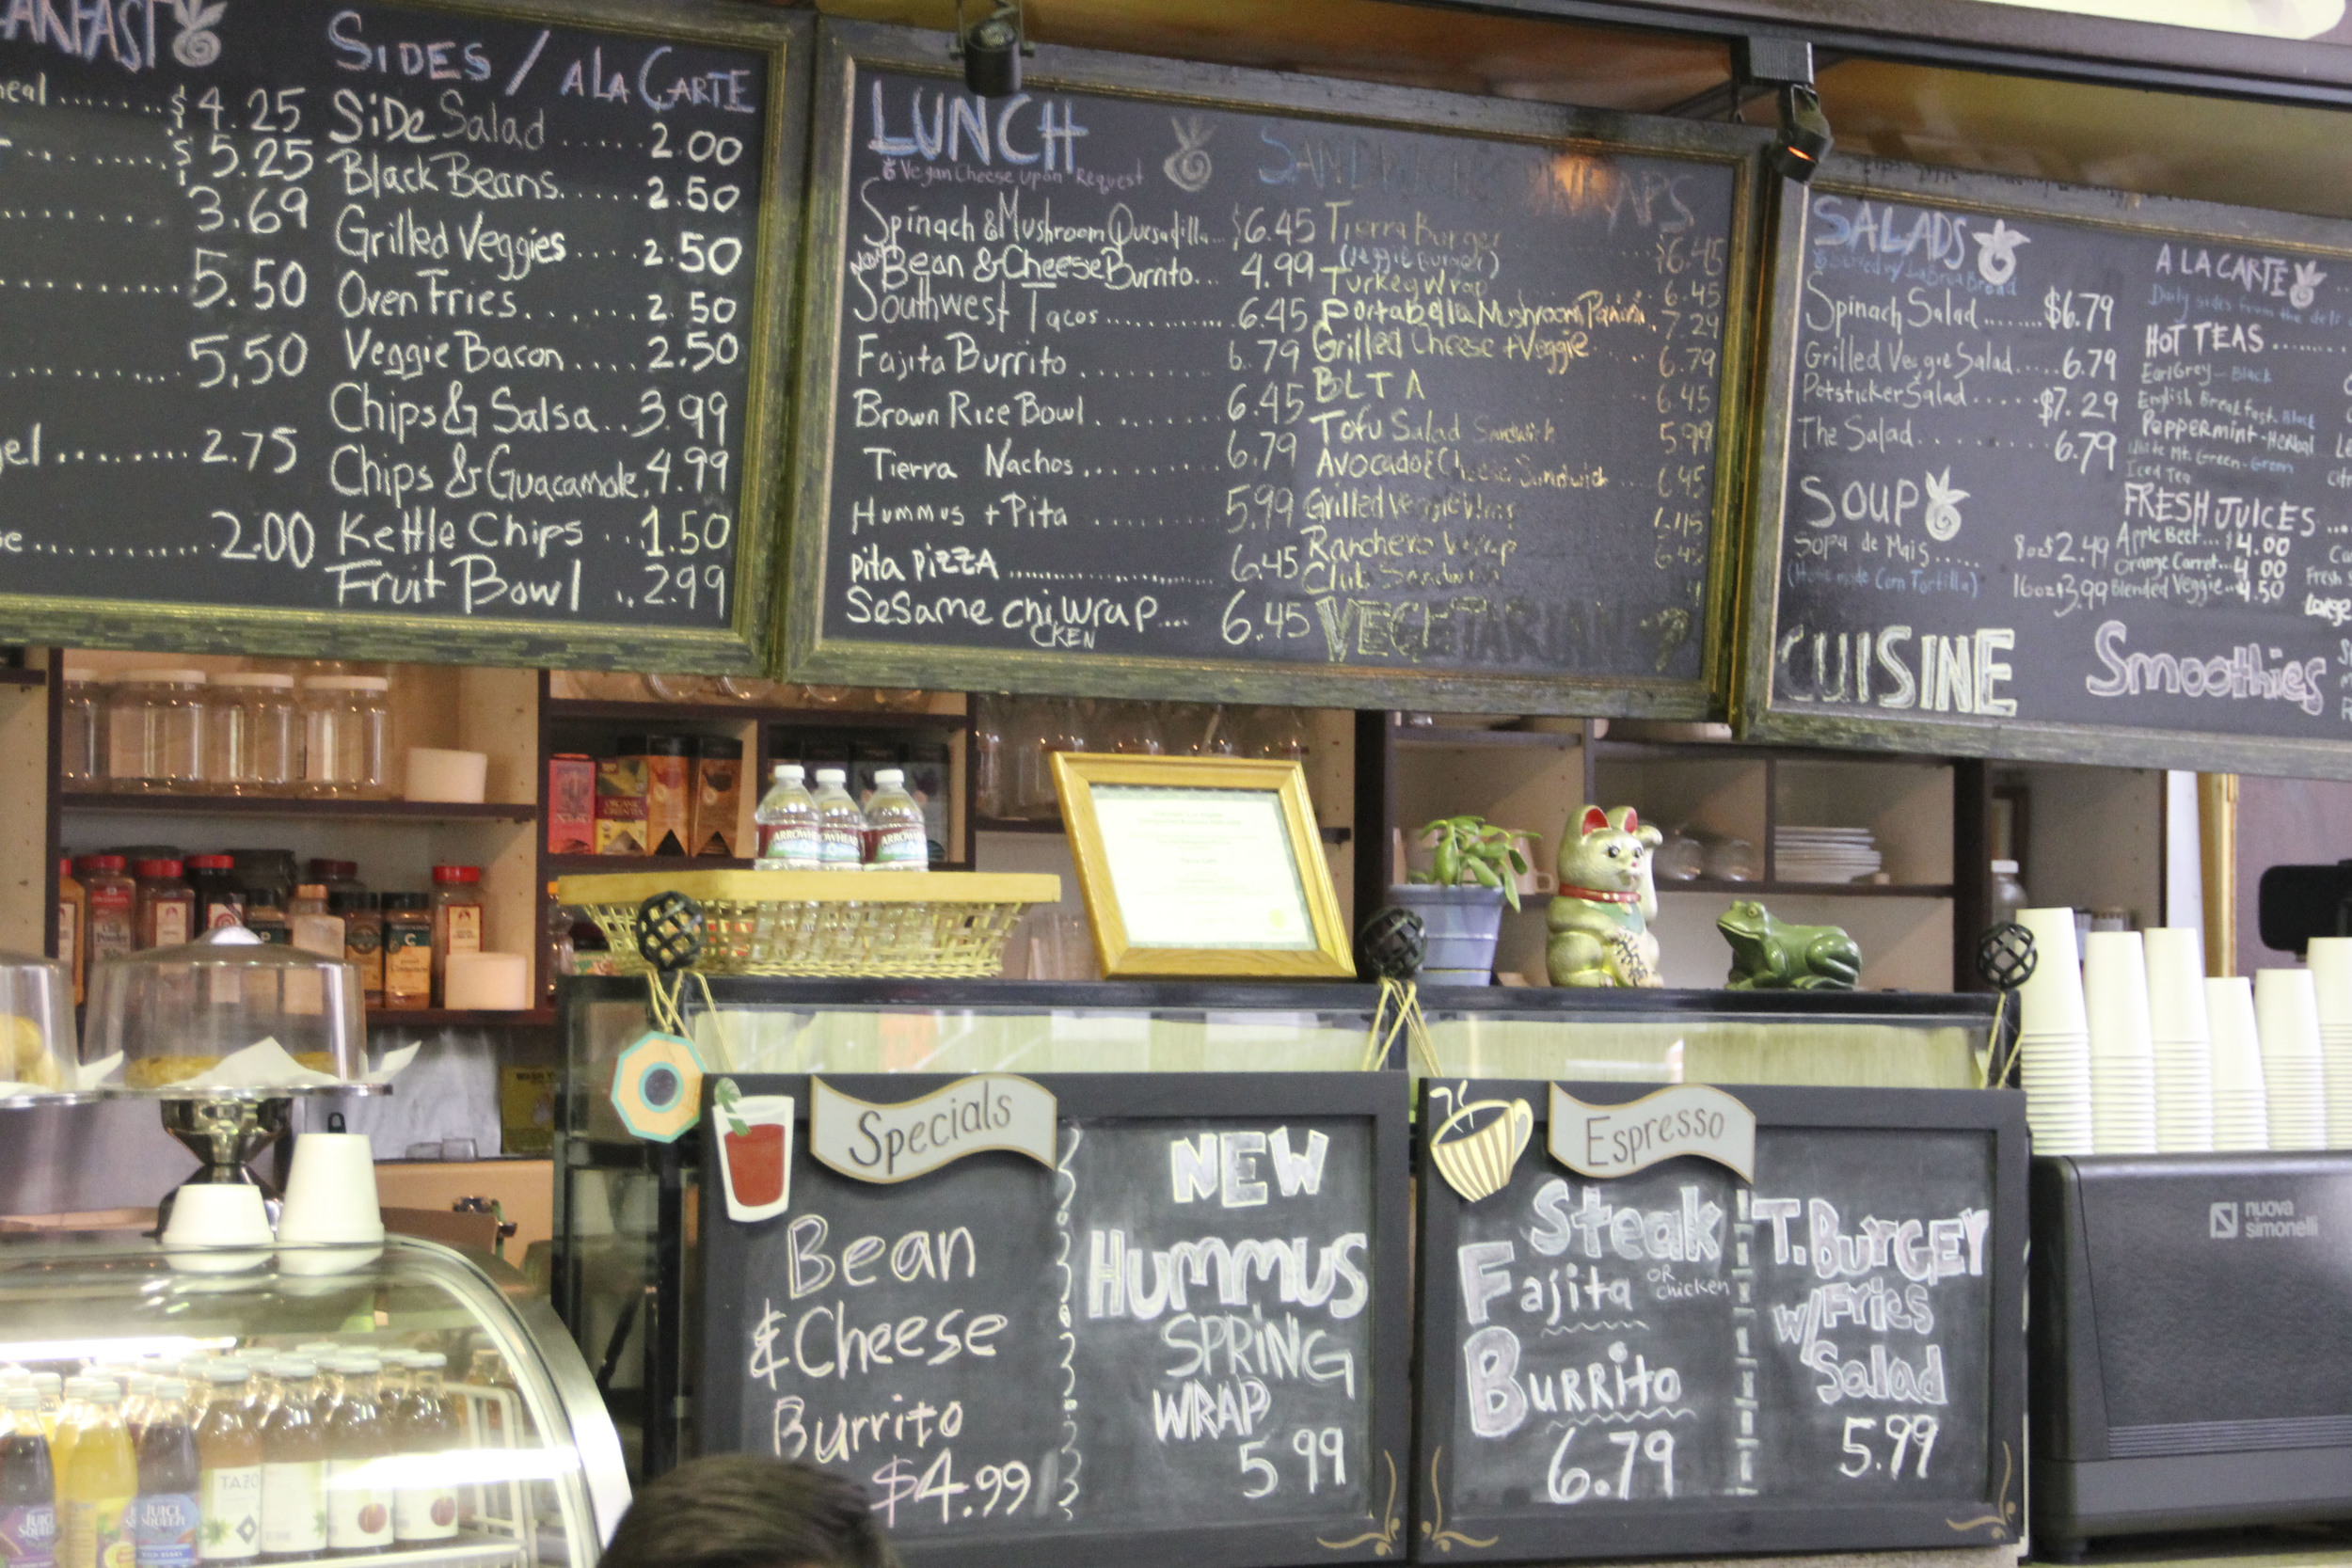 SIDES / A LA CARTE
$4.25
$5.25
3.69
5.50
5.50
2.75
2.00
Side Salad ..... 2.00
Black Beans ..... 2.50
Grilled Veggies .... 2.50
Oven Fries ....... 2.50
Veggie Bacon .... 2.50
Chips & Salsa .. 3.99
Chips & Guacamole. 4.99
Kettle Chips ... 1.50
Fruit Bowl .. 2.99
LUNCH
Vegan Cheese Upon Request
Spinach & Mushroom Quesadilla... $6.45
Bean & Cheese Burrito... 4.99
Southwest Tacos ............ 6.45
Fajita Burrito .......... 6.79
Brown Rice Bowl ......... 6.45
Tierra Nachos .......... 6.79
Hummus + Pita .......... 5.99
pita pizza ......................... 6.45
Sesame chi wrap.... 6.45
CKEN
Tierra Burger $6.45
(Veggie Burger)
Turkey Wrap 6.45
Portabella Mushroom Panini. 7.29
Grilled Cheese + Veggie 6.79
BLTA 6.45
Tofu Salad Sandwich 5.99
Avocado & Cheese Sandwich 6.45
Grilled Veggie Wrap
Ranchero Wrap 6.45
Club Sandwich
VEGETARIAN
SALADS
Spinach Salad ....... $6.79
Grilled Veggie Salad ..... 6.79
Potsticker Salad ...... $7.29
The Salad ......... 6.79
SOUP
Sopa de Mais .... 8oz $2.49
(Home made Corn Tortilla) 16oz $3.99
CUISINE
A LA CARTE
Daily sides from the deli
HOT TEAS ........
Earl Grey - Black
English Breakfast. Black
Peppermint - Herbal
White Mt. Green - Green
Iced Tea
FRESH JUICES ...
Apple Beet ... $4.00
Orange Carrot ... 4.00
Blended Veggie ... 4.50
Smoothies
ARROWHEAD
ARROWHEAD
Specials
Bean
& Cheese
Burrito
$4.99
NEW
HUMMUS
SPRING
WRAP
5.99
Espresso
Steak
OR chicken
Fajita
Burrito
6.79
T. BURGER
w/ Fries
Salad
5.99
nuova
simonelli
TAZO
JUICE
SQUEEZE